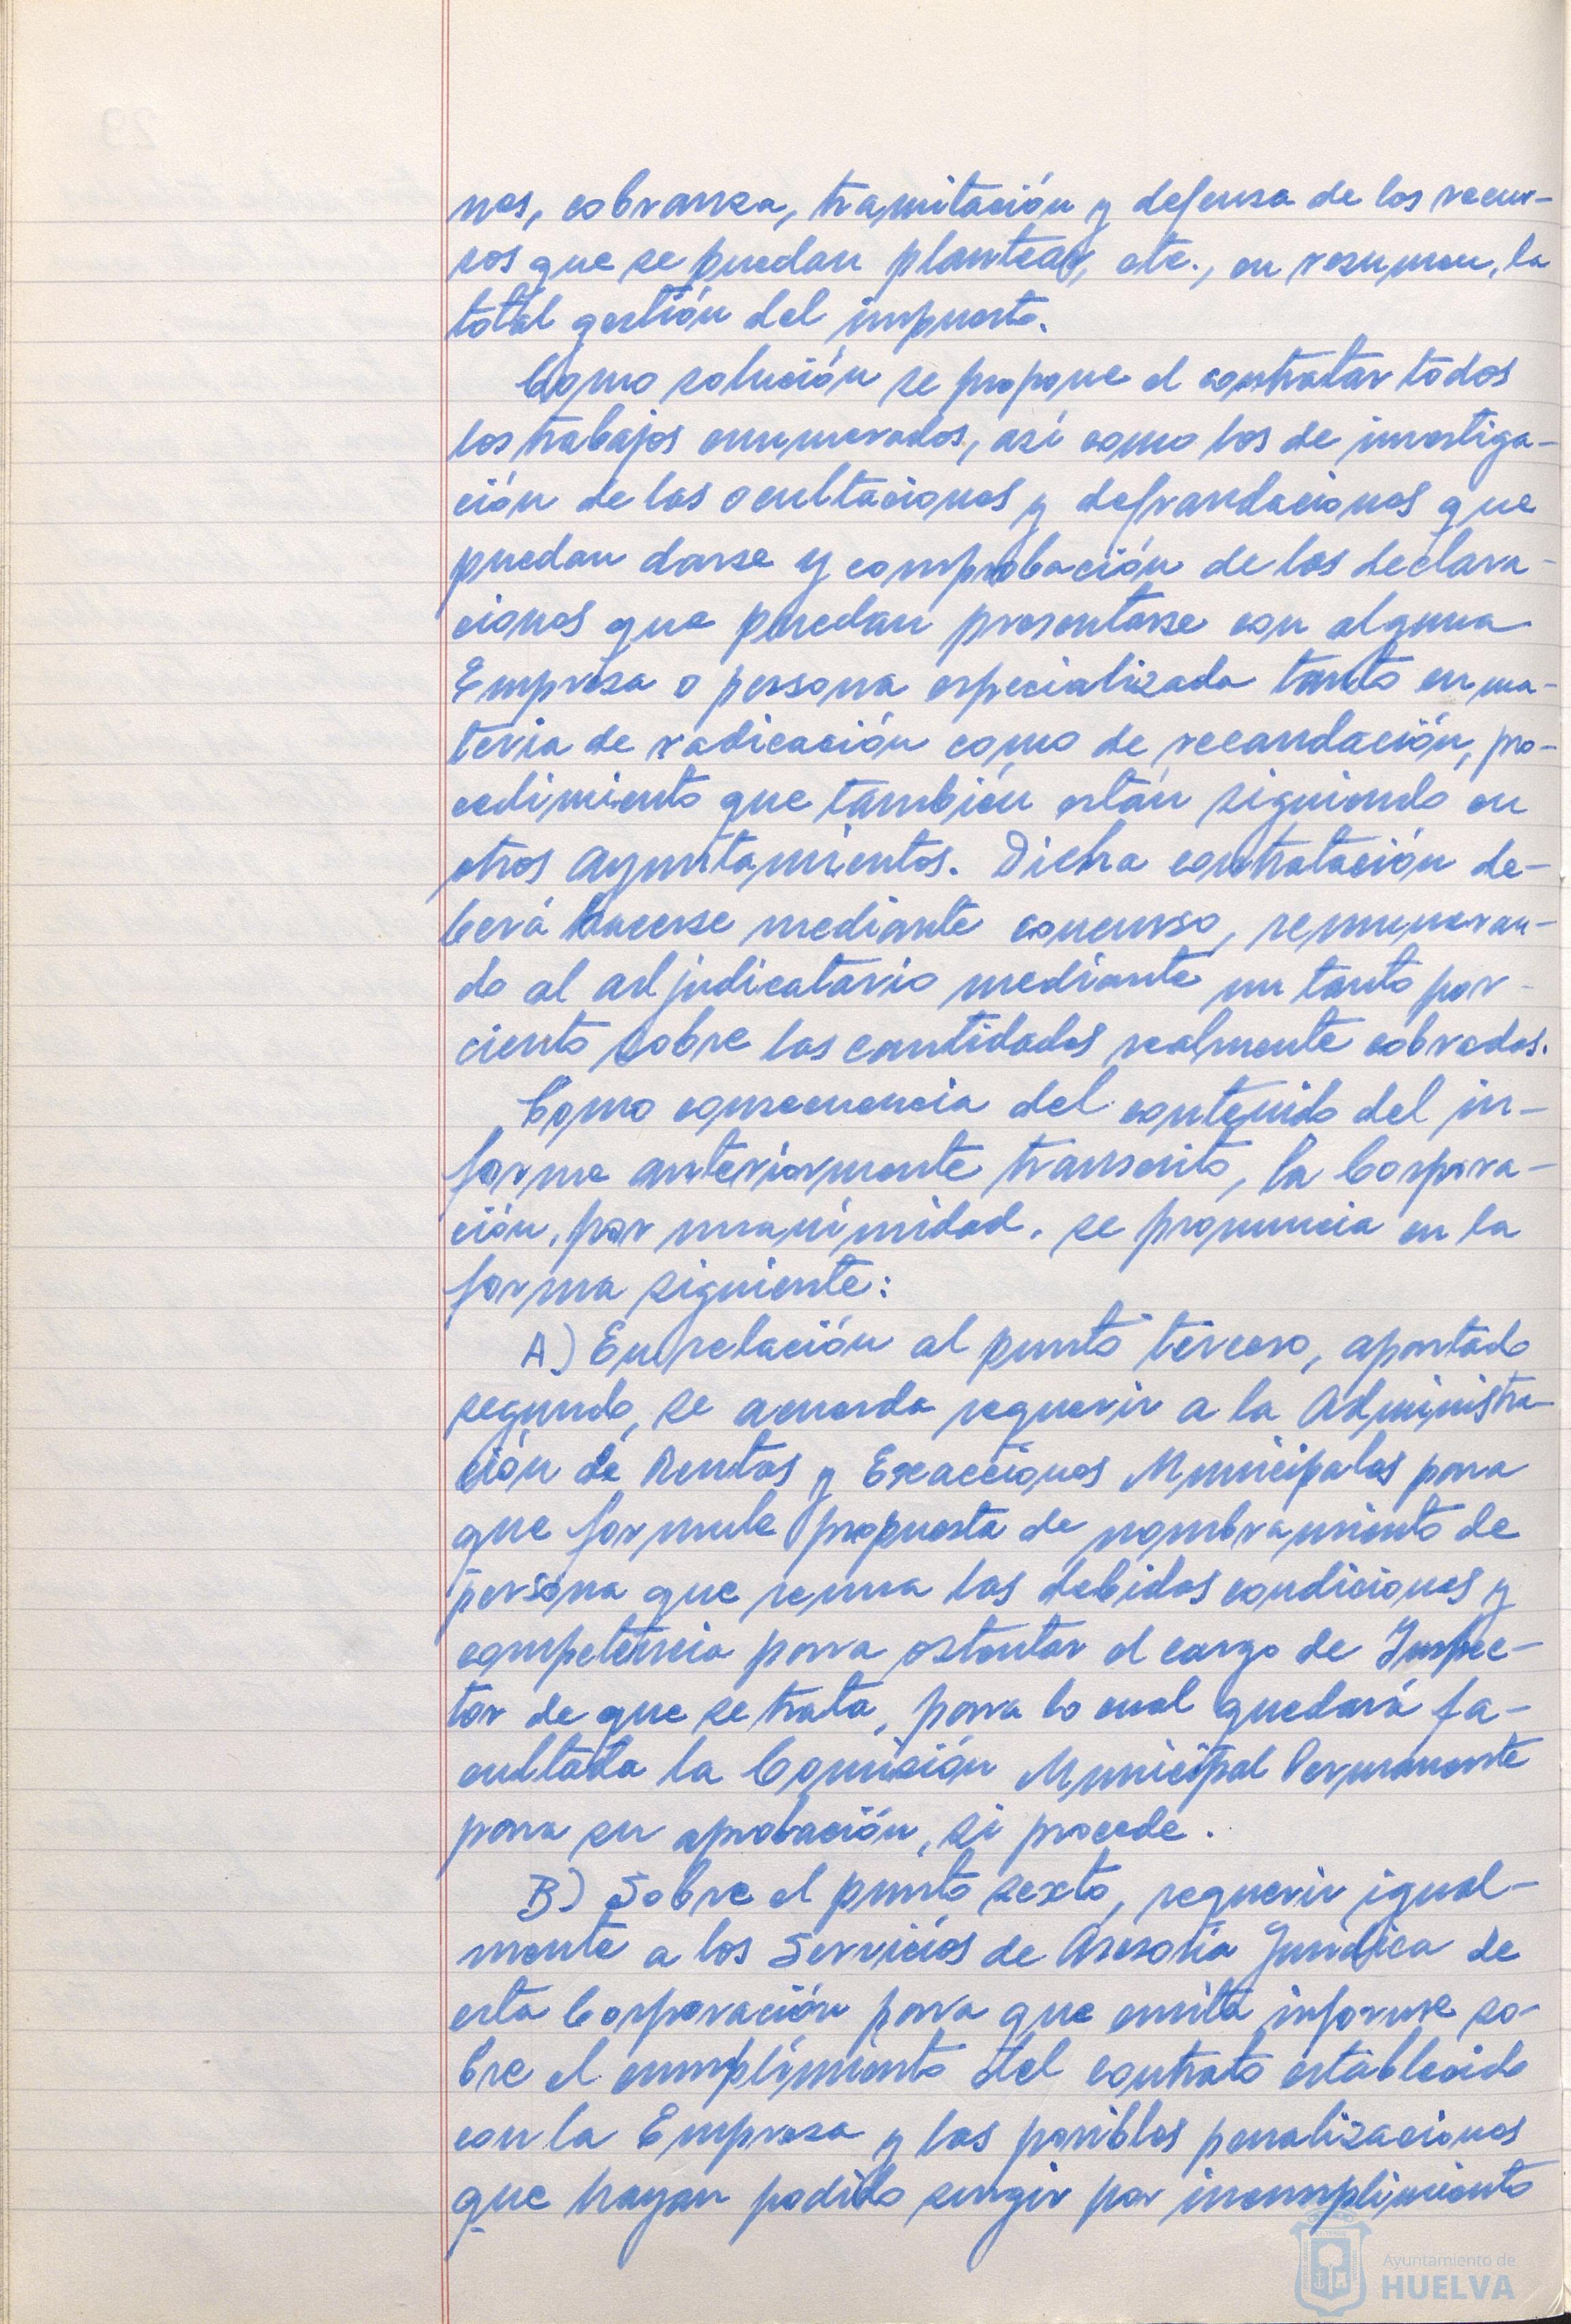 nes, cobranza, tramitación y defensa de los recur-
sos que se puedan plantear, etc., en resumen, la
total gestión del impuesto.
Como solución se propone el contratar todos
los trabajos enumerados, así como los de investiga-
ción de las ocultaciones y defraudaciones que
puedan darse y comprobación de las declara-
ciones que puedan presentarse con alguna
Empresa o persona especializada tanto en ma-
teria de radicación como de recaudación, pro-
cedimiento que también están siguiendo en
otros Ayuntamientos. Dicha contratación de-
berá hacerse mediante concurso, remuneran-
do al adjudicatario mediante un tanto por-
ciento sobre las cantidades realmente cobradas.
Como consecuencia del contenido del in-
forme anteriormente transcrito, la Corpora-
ción, por unanimidad, se pronuncia en la
forma siguiente:
A) En relación al punto tercero, apartado
segundo, se acuerda requerir a la Administra-
ción de Rentas y Exacciones Municipales para
que formule propuesta de nombramiento de
persona que reuna las debidas condiciones y
competencia para ostentar el cargo de Inspec-
tor de que se trata, para lo cual quedará fa-
cultada la Comisión Municipal Permanente
para su aprobación, si procede.
B) Sobre el punto sexto, requerir igual-
mente a los Servicios de Asesoría Jurídica de
esta Corporación para que emita informe so-
bre el cumplimiento del contrato establecido
con la Empresa y las posibles penalizaciones
que hayan podido surgir por incumplimiento
Ayuntamiento de
HUELVA